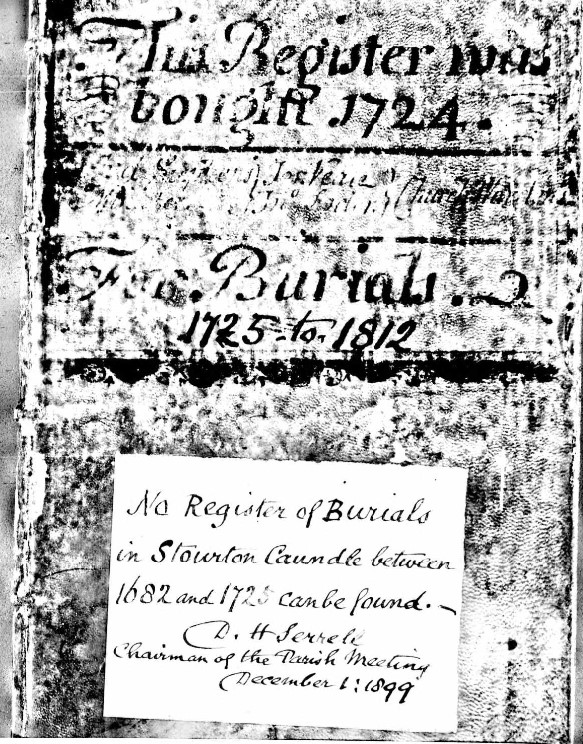 This Register was
bought 1724.
Church Wardens
For Burials.
1725 to 1812
No Register of Burials
in Stourton Caundle between
1682 and 1725 can be found.
D. H Serrell
Chairman of the Parish Meeting
December 1: 1899